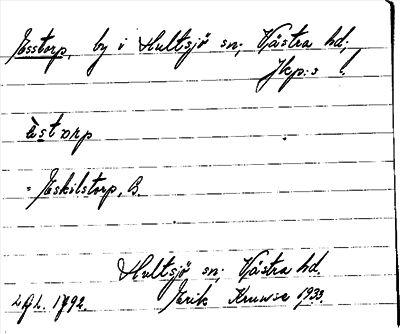 Esstorp, by i Hultsjö sn; Västra hd;
Jkp:s l.
èstorp
= Eskilstorp, B.
Hultsjö sn; Västra hd.
Erik Kruuse 1933.